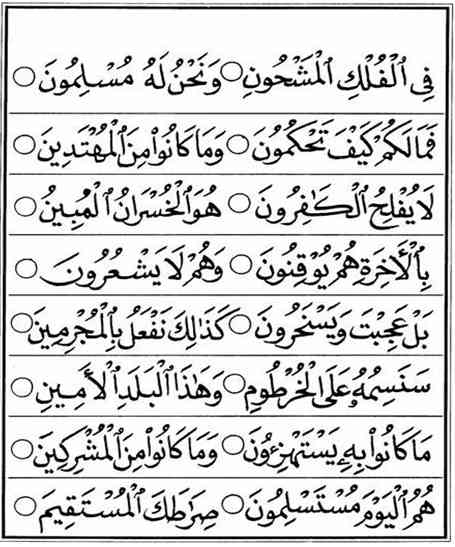 فِي ٱلْفُلْكِ ٱلْمَشْحُونِ ○ وَنَحْنُ لَهُ مُسْلِمُونَ ○
فَمَالَكُمْ كَيْفَ تَحْكُمُونَ ○ وَمَا كَانُوا۟ مِنَ ٱلْمُهْتَدِينَ ○
لَا يُفْلِحُ ٱلْكَـٰفِرُونَ ○ هُوَ ٱلْخُسْرَانُ ٱلْمُبِينُ ○
بِٱلْأَخِرَةِ هُمْ يُوقِنُونَ ○ وَهُمْ لَا يَشْعُرُونَ ○
بَلْ عَجِبْتَ وَيَسْخَرُونَ ○ كَذَٰلِكَ نَفْعَلُ بِٱلْمُجْرِمِينَ ○
سَنَسِمُهُۥ عَلَى ٱلْخُرْطُومِ ○ وَهَـٰذَا ٱلْبَلَدِ ٱلْأَمِينِ ○
مَا كَانُوا۟ بِهِۦ يَسْتَهْزِءُونَ ○ وَمَا كَانُوا۟ مِنَ ٱلْمُشْرِكِينَ ○
هُمُ ٱلْيَوْمَ مُسْتَسْلِمُونَ ○ صِرَٰطَكَ ٱلْمُسْتَقِيمَ ○